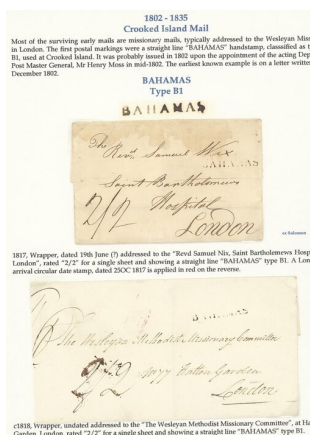 1802 - 1835
Crooked Island Mail
Most of the surviving early mails are missionary mails, typically addressed to the Wesleyan Miss
in London. The first postal markings were a straight line "BAHAMAS" handstamp, classsified as t
B1, used at Crooked Island. It was probably issued in 1802 upon the appointment of the acting Dep
Post Master General, Mr Henry Moss in mid-1802. The earliest known example is on a letter writte
December 1802.
BAHAMAS
Type B1
BAHAMAS
The
Revd. Samuel Wix
BAHAMAS
Saint Bartholemews
Hospital
2/2
London
ex Saloman
1817, Wrapper, dated 19th June (?) addressed to the "Revd Samuel Nix, Saint Bartholemews Hosp
London", rated "2/2" for a single sheet and showing a straight line "BAHAMAS" type B1. A Lon
arrival circular date stamp, dated 25OC 1817 is applied in red on the reverse.
BAHAMAS
The Wesleyan Methodist Missionary Committee
77 Hatton Garden
London
c1818, Wrapper, undated addressed to the "The Wesleyan Methodist Missionary Committee", at Ha
Garden, London, rated "2/2" for a single sheet and showing a straight line "BAHAMAS" type B1.